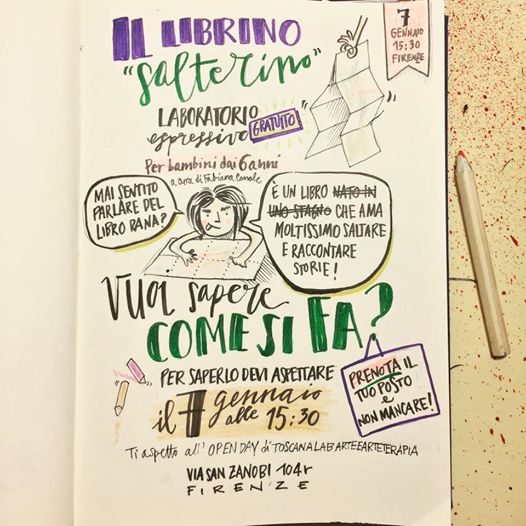 IL LIBRINO
"Salterino"
7
GENNAIO
15:30
FIRENZE
LABORATORIO
espressivo GRATUITO
Per bambini dai 6 anni
a cura di Fabiana Canale
MAI SENTITO
PARLARE DEL
LIBRO RANA?
È UN LIBRO NATO IN
UNO STAGNO CHE AMA
MOLTISSIMO SALTARE
E RACCONTARE
STORIE!
VUOI sapere
COME SI FA?
PER SAPERLO DEVI ASPETTARE
il 7 gennaio
alle 15:30
PRENOTA IL
TUO POSTO
e
NON MANCARE!
Ti aspetto all'OPEN DAY di TOSCANALABARTEEARTETERAPIA
VIA SAN ZANOBI 104r
FIRENZE